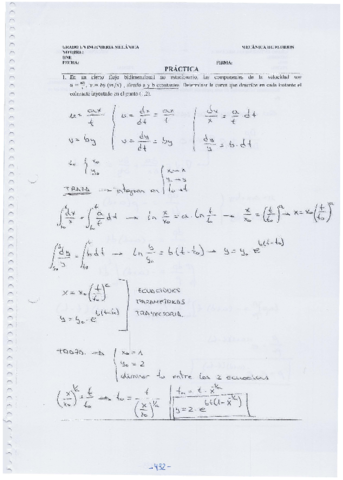 GRADO EN INGENIERÍA MECÁNICA MECÁNICA DE FLUIDOS
NOMBRE:
DNI:
FECHA: FIRMA:
PRÁCTICA
1. En un cierto flujo bidimensional no estacionario, las componentes de la velocidad son
u = ax/t , v = by (m/s) , siendo a y b constantes. Determinar la curva que describe en cada instante el
colorante inyectado en el punto (1,2).
u = ax/t { u = dx/dt = ax/t { dx/x = a/t dt
v = by { v = dy/dt = by { dy/y = b·dt
t₀ { x₀ y₀
TRAZA → integramos en
∫ dx/x = ∫ a/t dt → ln x/x₀ = a·ln t/t₀ → x/x₀ = (t/t₀)^a → x = x₀(t/t₀)^a
∫ dy/y = ∫ b dt → ln y/y₀ = b(t-t₀) → y = y₀ e^b(t-t₀)
x = x₀(t/t₀)^a ECUACIONES
PARAMÉTRICAS
y = y₀·e^b(t-t₀) TRAYECTORIA
TRAZA → { x₀ = 1
y₀ = 2
eliminar t₀ entre las 2 ecuaciones
(x/x₀)^1/a = t/t₀ → t₀ = t/(x/x₀)^1/a { t₀ = t·x^-1/a
y = 2·e^bt(1-x^-1/a)
-432-